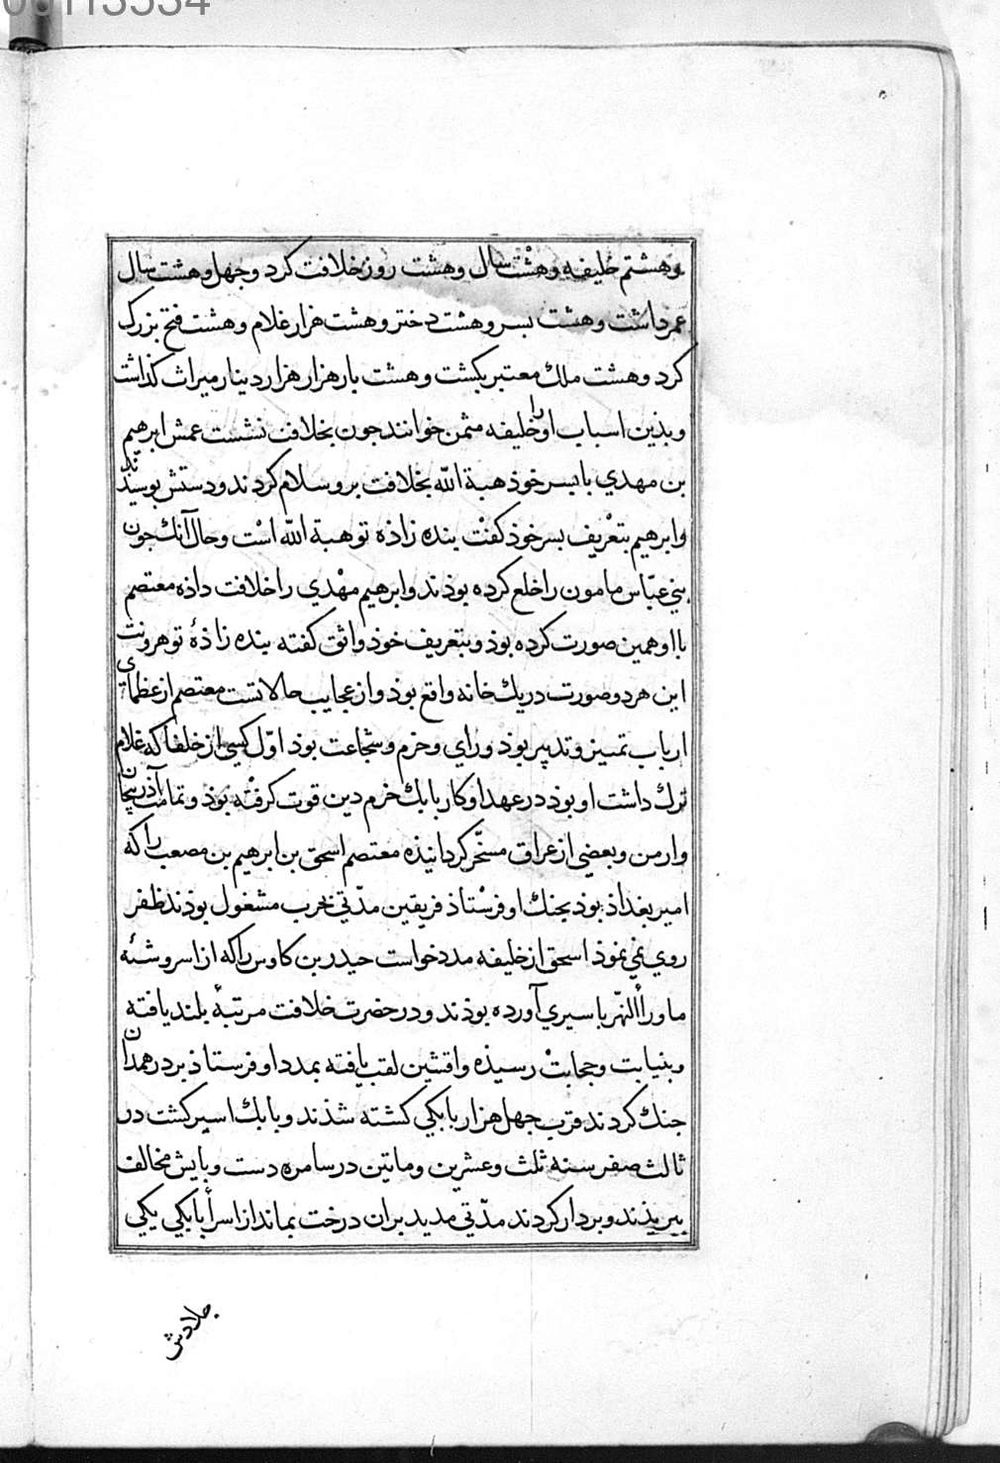 06113534
وهشتم خلیفه وهشت سال وهشت روز خلافت کرد وجهل وهشت سال
عمر داشت وهشت بسر وهشت دختر وهشت هزار غلام وهشت فتح بزرک
کرد وهشت ملک معتبر بکشت وهشت بار هزار هزار دینار میراث کذاشت
وبذین اسباب اورا خلیفه مثمن خوانند جون بخلافت نشست عمش ابرهیم
بن مهدي با بسر خوذ هبة الله بخلافت برو سلام کردند ودستش بوسیدند
وابرهیم بتعریف بسر خوذ کفت بنده زاذه تو هبة الله است وحال آنک جون
بني عباس مامون را خلع کرده بوذند وابرهیم مهدي را خلافت داذه معتصم
با او همین صورت کرده بوذ وبتعریف خوذ واثق کفته بنده زاذهٔ تو هرونت
این هر دو صورت در یک خانه واقع بوذ واز عجایب حالاتست معتصم از عظمای
ارباب تمییز وتدبیر بوذ ورای وحزم وشجاعت بوذ اول کسی از خلفا که غلام
ترک داشت او بوذ در عهد او کار بابک خرم دین قوت کرفته بوذ وتمامت آذربیجان
وارمن وبعضي از عراق مسخر کردانیذه معتصم اسحق بن ابرهیم بن مصعب را که
امیر بغداذ بوذ بجنک او فرستاذ فریقین مدتی بحرب مشغول بوذند ظفر
روي نمي نموذ اسحق از خلیفه مدد خواست حیدر بن کاوس را که از اسروشنه
ماوراألنهر باسیري آورده بوذند ودر حضرت خلافت مرتبهٔ بلند یافته
وبنیابت وحجابت رسیذه وافشین لقب یافته بمدد او فرستاذ بر در همدان
جنک کردند قرب جهل هزار بابکي کشته شذند وبابک اسیر کشت در
ثالث صفر سنه ثلث وعشرین وماتین در سامره دست وبایش مخالف
ببریذند وبر دار کردند مدتی مدید بران درخت بماند از اسرأ بابکي یکي
جلادش